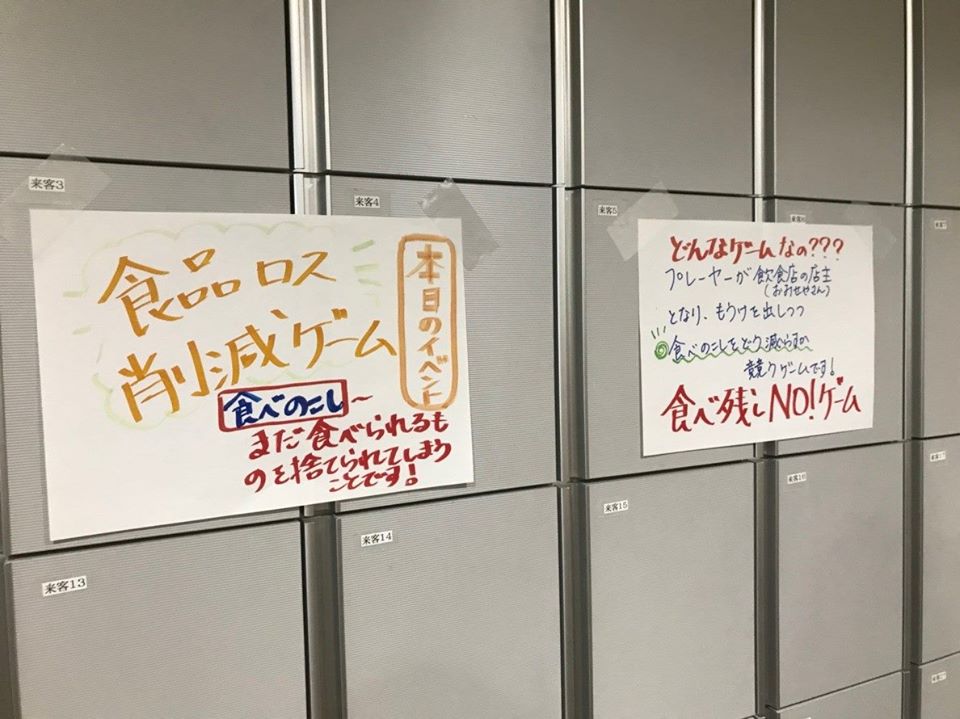 来客3
来客4
来客5
食品ロス
削減ゲーム
本日のイベント
食べのこし～
まだ食べられるも
のを捨てられてしまう
ことです!
どんなゲームなの???
プレーヤーが飲食店の店主
(おみせやさん)
となり、もうけを出しつつ
◎食べのこしをどう減らすか
競うゲームです!
食べ残しNO!ゲーム
来客13
来客14
来客15
来客16